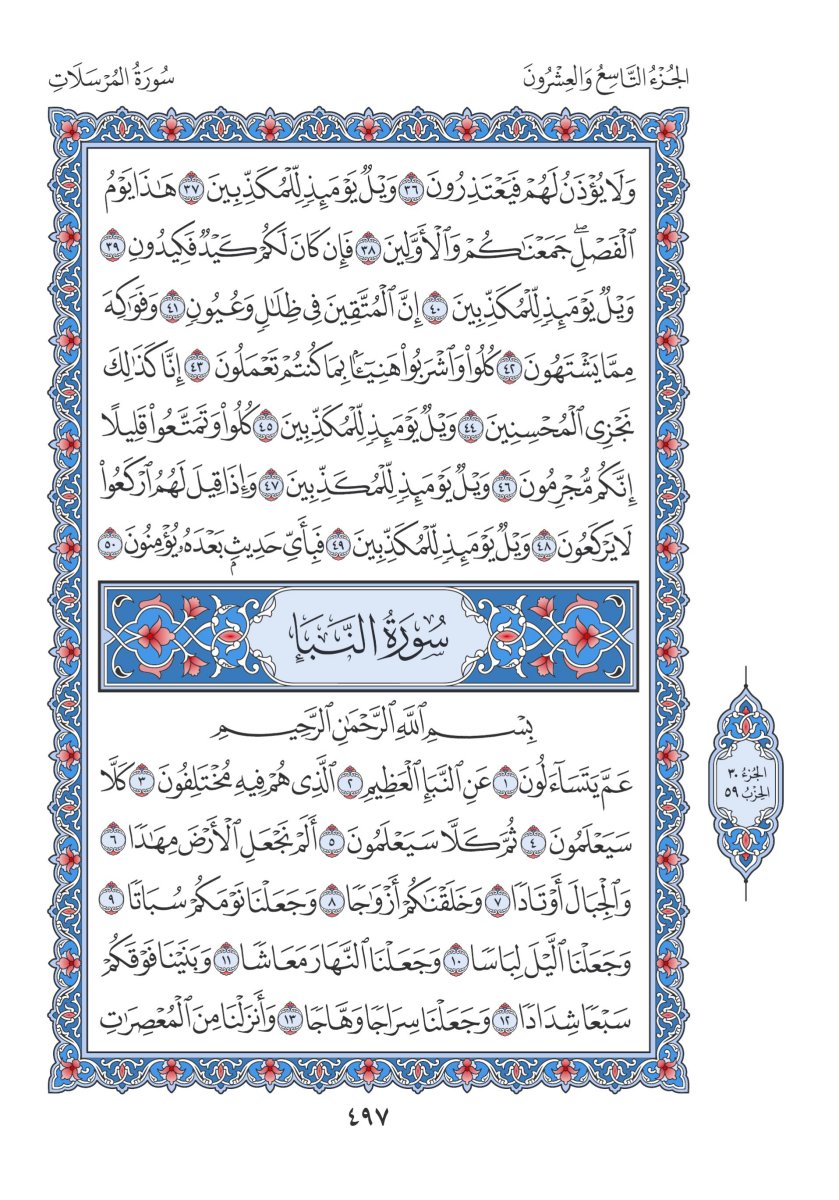 الجُزْءُ التَّاسِعُ وَالعِشْرُونَ
سُورَةُ المُرْسَلَاتِ
وَلَا يُؤْذَنُ لَهُمْ فَيَعْتَذِرُونَ ٣٦ وَيْلٌ يَوْمَئِذٍ لِّلْمُكَذِّبِينَ ٣٧ هَـٰذَا يَوْمُ
ٱلْفَصْلِۖ جَمَعْنَـٰكُمْ وَٱلْأَوَّلِينَ ٣٨ فَإِن كَانَ لَكُمْ كَيْدٌ فَكِيدُونِ ٣٩
وَيْلٌ يَوْمَئِذٍ لِّلْمُكَذِّبِينَ ٤٠ إِنَّ ٱلْمُتَّقِينَ فِى ظِلَـٰلٍ وَعُيُونٍ ٤١ وَفَوَٰكِهَ
مِمَّا يَشْتَهُونَ ٤٢ كُلُوا۟ وَٱشْرَبُوا۟ هَنِيٓـًٔۢا بِمَا كُنتُمْ تَعْمَلُونَ ٤٣ إِنَّا كَذَٰلِكَ
نَجْزِى ٱلْمُحْسِنِينَ ٤٤ وَيْلٌ يَوْمَئِذٍ لِّلْمُكَذِّبِينَ ٤٥ كُلُوا۟ وَتَمَتَّعُوا۟ قَلِيلًا
إِنَّكُم مُّجْرِمُونَ ٤٦ وَيْلٌ يَوْمَئِذٍ لِّلْمُكَذِّبِينَ ٤٧ وَإِذَا قِيلَ لَهُمُ ٱرْكَعُوا۟
لَا يَرْكَعُونَ ٤٨ وَيْلٌ يَوْمَئِذٍ لِّلْمُكَذِّبِينَ ٤٩ فَبِأَىِّ حَدِيثٍۭ بَعْدَهُۥ يُؤْمِنُونَ ٥٠
سُورَةُ النَّبَإِ
بِسْمِ ٱللَّهِ ٱلرَّحْمَـٰنِ ٱلرَّحِيمِ
عَمَّ يَتَسَآءَلُونَ ١ عَنِ ٱلنَّبَإِ ٱلْعَظِيمِ ٢ ٱلَّذِى هُمْ فِيهِ مُخْتَلِفُونَ ٣ كَلَّا
سَيَعْلَمُونَ ٤ ثُمَّ كَلَّا سَيَعْلَمُونَ ٥ أَلَمْ نَجْعَلِ ٱلْأَرْضَ مِهَـٰدًا ٦
وَٱلْجِبَالَ أَوْتَادًا ٧ وَخَلَقْنَـٰكُمْ أَزْوَٰجًا ٨ وَجَعَلْنَا نَوْمَكُمْ سُبَاتًا ٩
وَجَعَلْنَا ٱلَّيْلَ لِبَاسًا ١٠ وَجَعَلْنَا ٱلنَّهَارَ مَعَاشًا ١١ وَبَنَيْنَا فَوْقَكُمْ
سَبْعًا شِدَادًا ١٢ وَجَعَلْنَا سِرَاجًا وَهَّاجًا ١٣ وَأَنزَلْنَا مِنَ ٱلْمُعْصِرَٰتِ
الجُزءُ ٣٠
الحِزْبُ ٥٩
٤٩٧